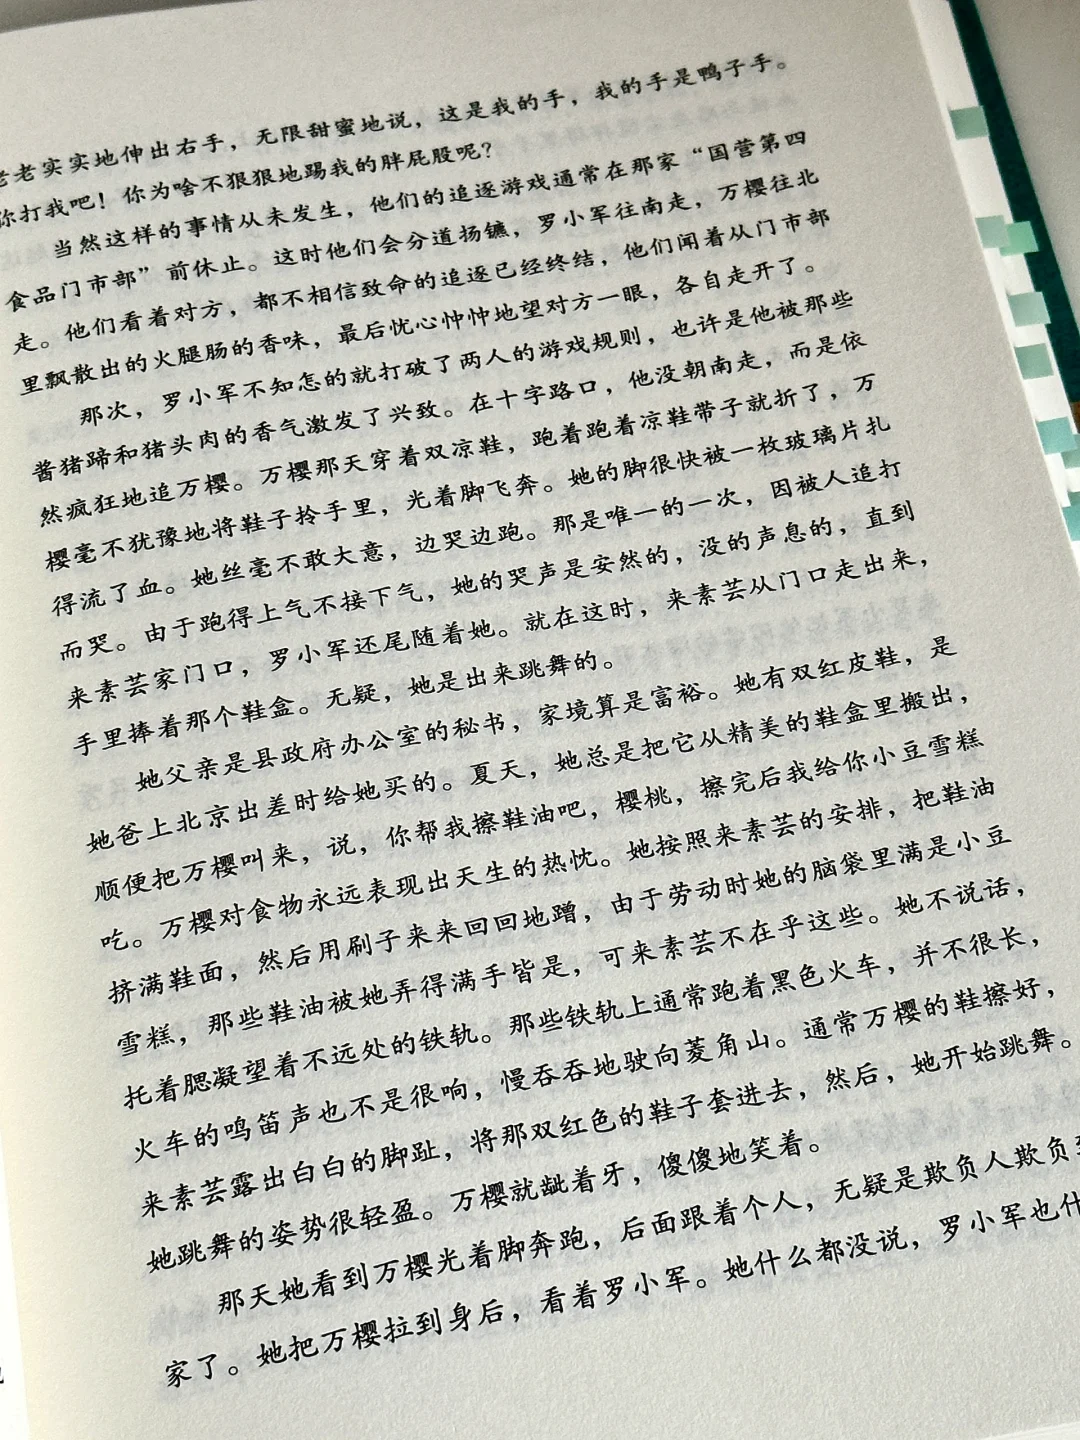 老老实实地伸出右手，无限甜蜜地说，这是我的手，我的手是鸭子手。
你打我吧！你为啥不狠狠地踢我的胖屁股呢？
当然这样的事情从未发生，他们的追逐游戏通常在那家“国营第四
食品门市部”前休止。这时他们会分道扬镳，罗小军往南走，万樱往北
走。他们看着对方，都不相信致命的追逐已经终结，他们闻着从门市部
里飘散出的火腿肠的香味，最后忧心忡忡地望对方一眼，各自走开了。
那次，罗小军不知怎的就打破了两人的游戏规则，也许是他被那些
酱猪蹄和猪头肉的香气激发了兴致。在十字路口，他没朝南走，而是依
然疯狂地追万樱。万樱那天穿着双凉鞋，跑着跑着凉鞋带子就折了，万
樱毫不犹豫地将鞋子拎手里，光着脚飞奔。她的脚很快被一枚玻璃片扎
得流了血。她丝毫不敢大意，边哭边跑。那是唯一的一次，因被人追打
而哭。由于跑得上气不接下气，她的哭声是安然的，没的声息的，直到
来素芸家门口，罗小军还尾随着她。就在这时，来素芸从门口走出来，
手里捧着那个鞋盒。无疑，她是出来跳舞的。
她父亲是县政府办公室的秘书，家境算是富裕。她有双红皮鞋，是
她爸上北京出差时给她买的。夏天，她总是把它从精美的鞋盒里搬出，
顺便把万樱叫来，说，你帮我擦鞋油吧，樱桃，擦完后我给你小豆雪糕
吃。万樱对食物永远表现出天生的热忱。她按照来素芸的安排，把鞋油
挤满鞋面，然后用刷子来来回回地蹭，由于劳动时她的脑袋里满是小豆
雪糕，那些鞋油被她弄得满手皆是，可来素芸不在乎这些。她不说话，
托着腮凝望着不远处的铁轨。那些铁轨上通常跑着黑色火车，并不很长，
火车的鸣笛声也不是很响，慢吞吞地驶向菱角山。通常万樱的鞋擦好，
来素芸露出白白的脚趾，将那双红色的鞋子套进去，然后，她开始跳舞。
她跳舞的姿势很轻盈。万樱就龇着牙，傻傻地笑着。
那天她看到万樱光着脚奔跑，后面跟着个人，无疑是欺负人欺负到
家了。她把万樱拉到身后，看着罗小军。她什么都没说，罗小军也什